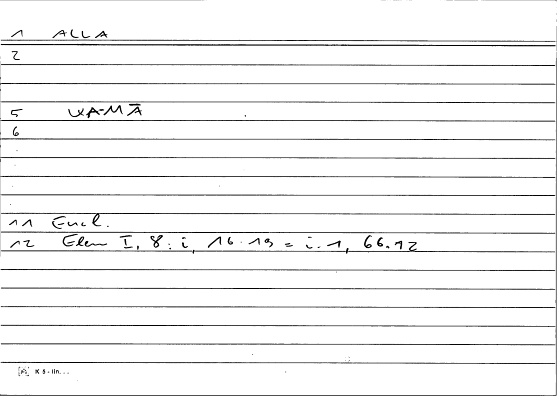 1 ALLA
2
5 WA-MĀ
6
11 Eucl.
12 Elem I, 8 : i, 16.19 = i.1, 66.12
K 5 - lin...